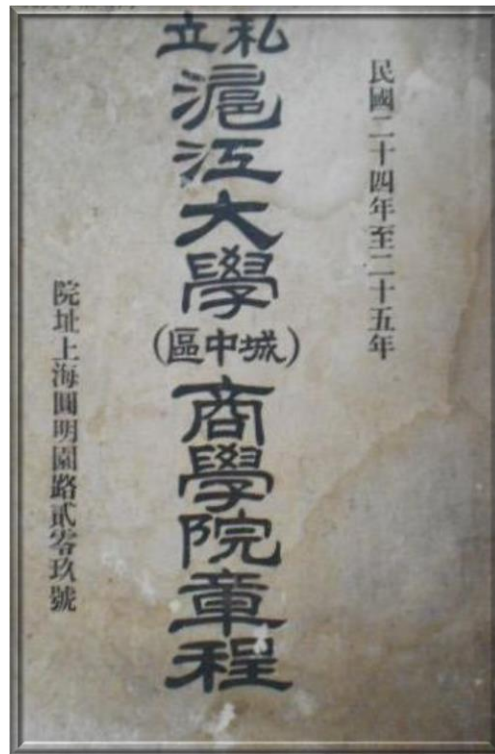 民國二十四年至二十五年
私立
滬江大學
(城中區)
商學院章程
院址上海圓明園路貳零玖號